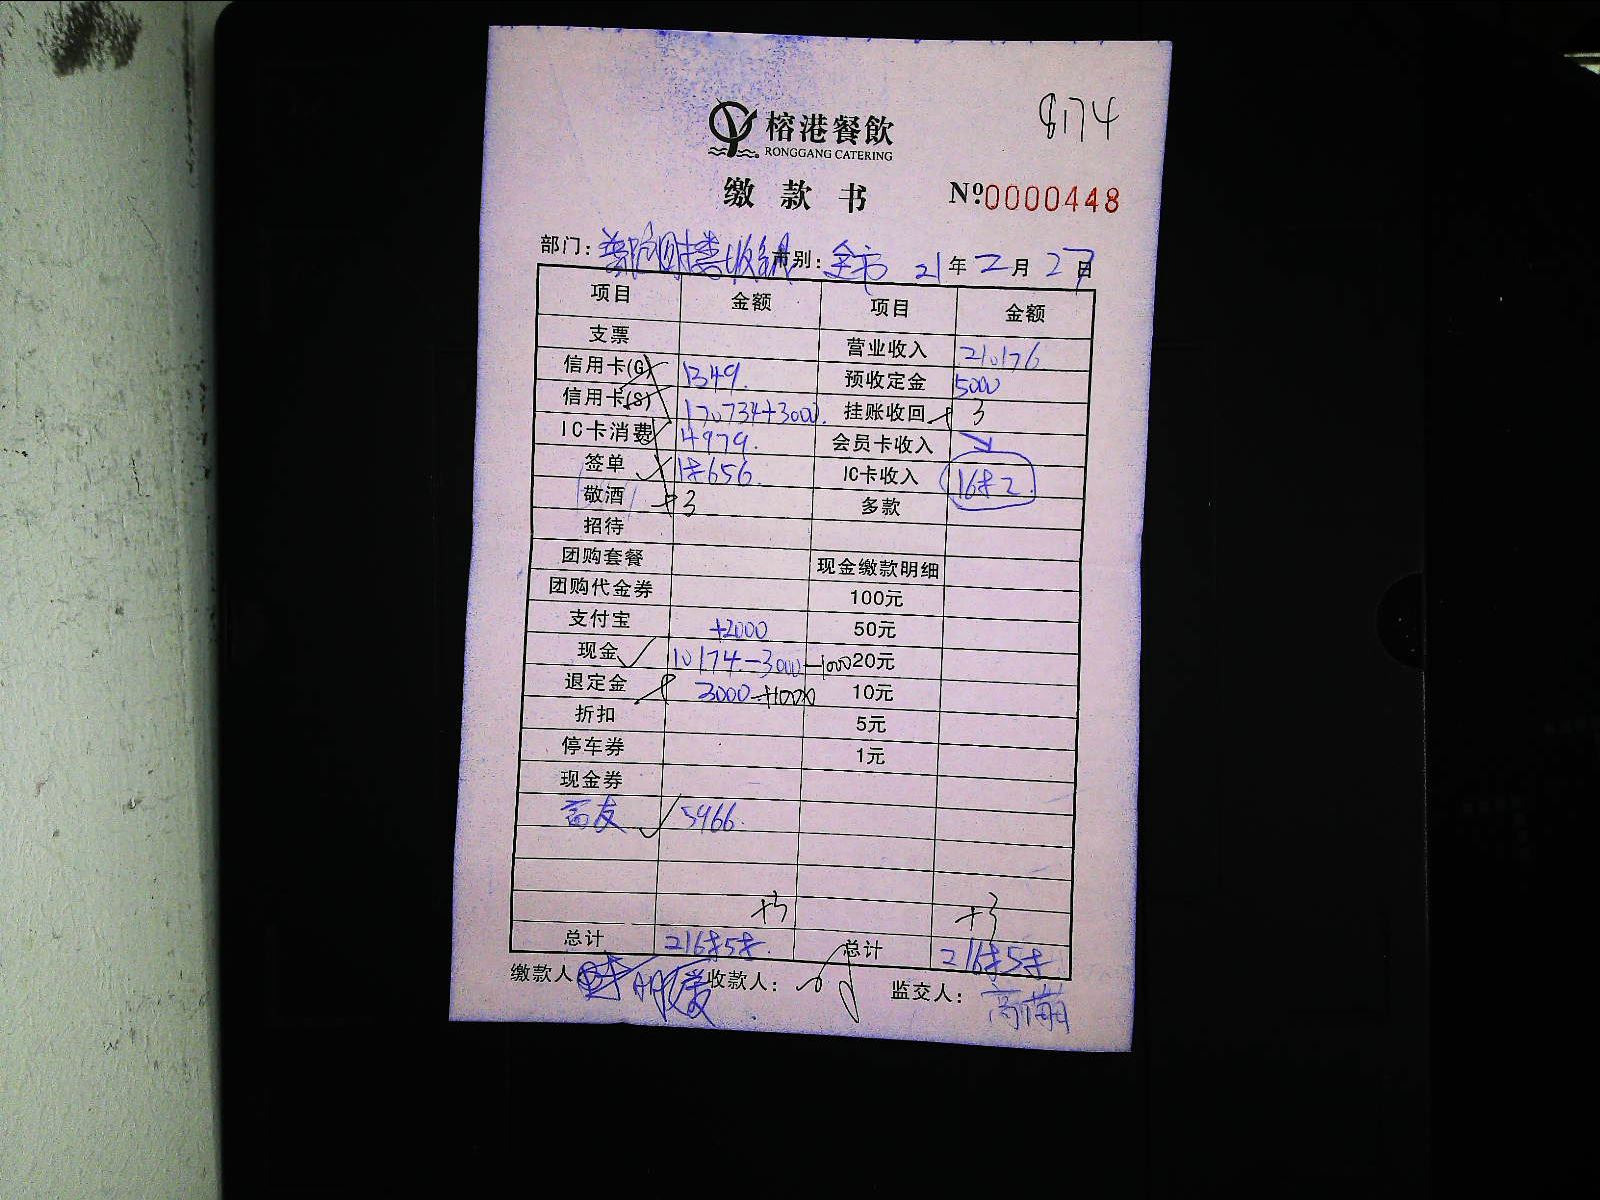 8174
榕港餐飲
RONGGANG CATERING
缴款书 Nº0000448
部门: 市别: 全市 21年2月27日
项目 金额 项目 金额
支票 营业收入 210176
信用卡(G) 1349. 预收定金 5000
信用卡(S) 170734+3000. 挂账收回 3
IC卡消费 4979. 会员卡收入
签单 18656. IC卡收入 1682.
敬酒 +3 多款
招待
团购套餐 现金缴款明细
团购代金券 100元
支付宝 +2000 50元
现金 10174-3000-1000 20元
退定金 2000+1000 10元
折扣 5元
停车券 1元
现金券
5466.
+3 +3
总计 216858. 总计 216858
缴款人: 收款人: 监交人: 高萌